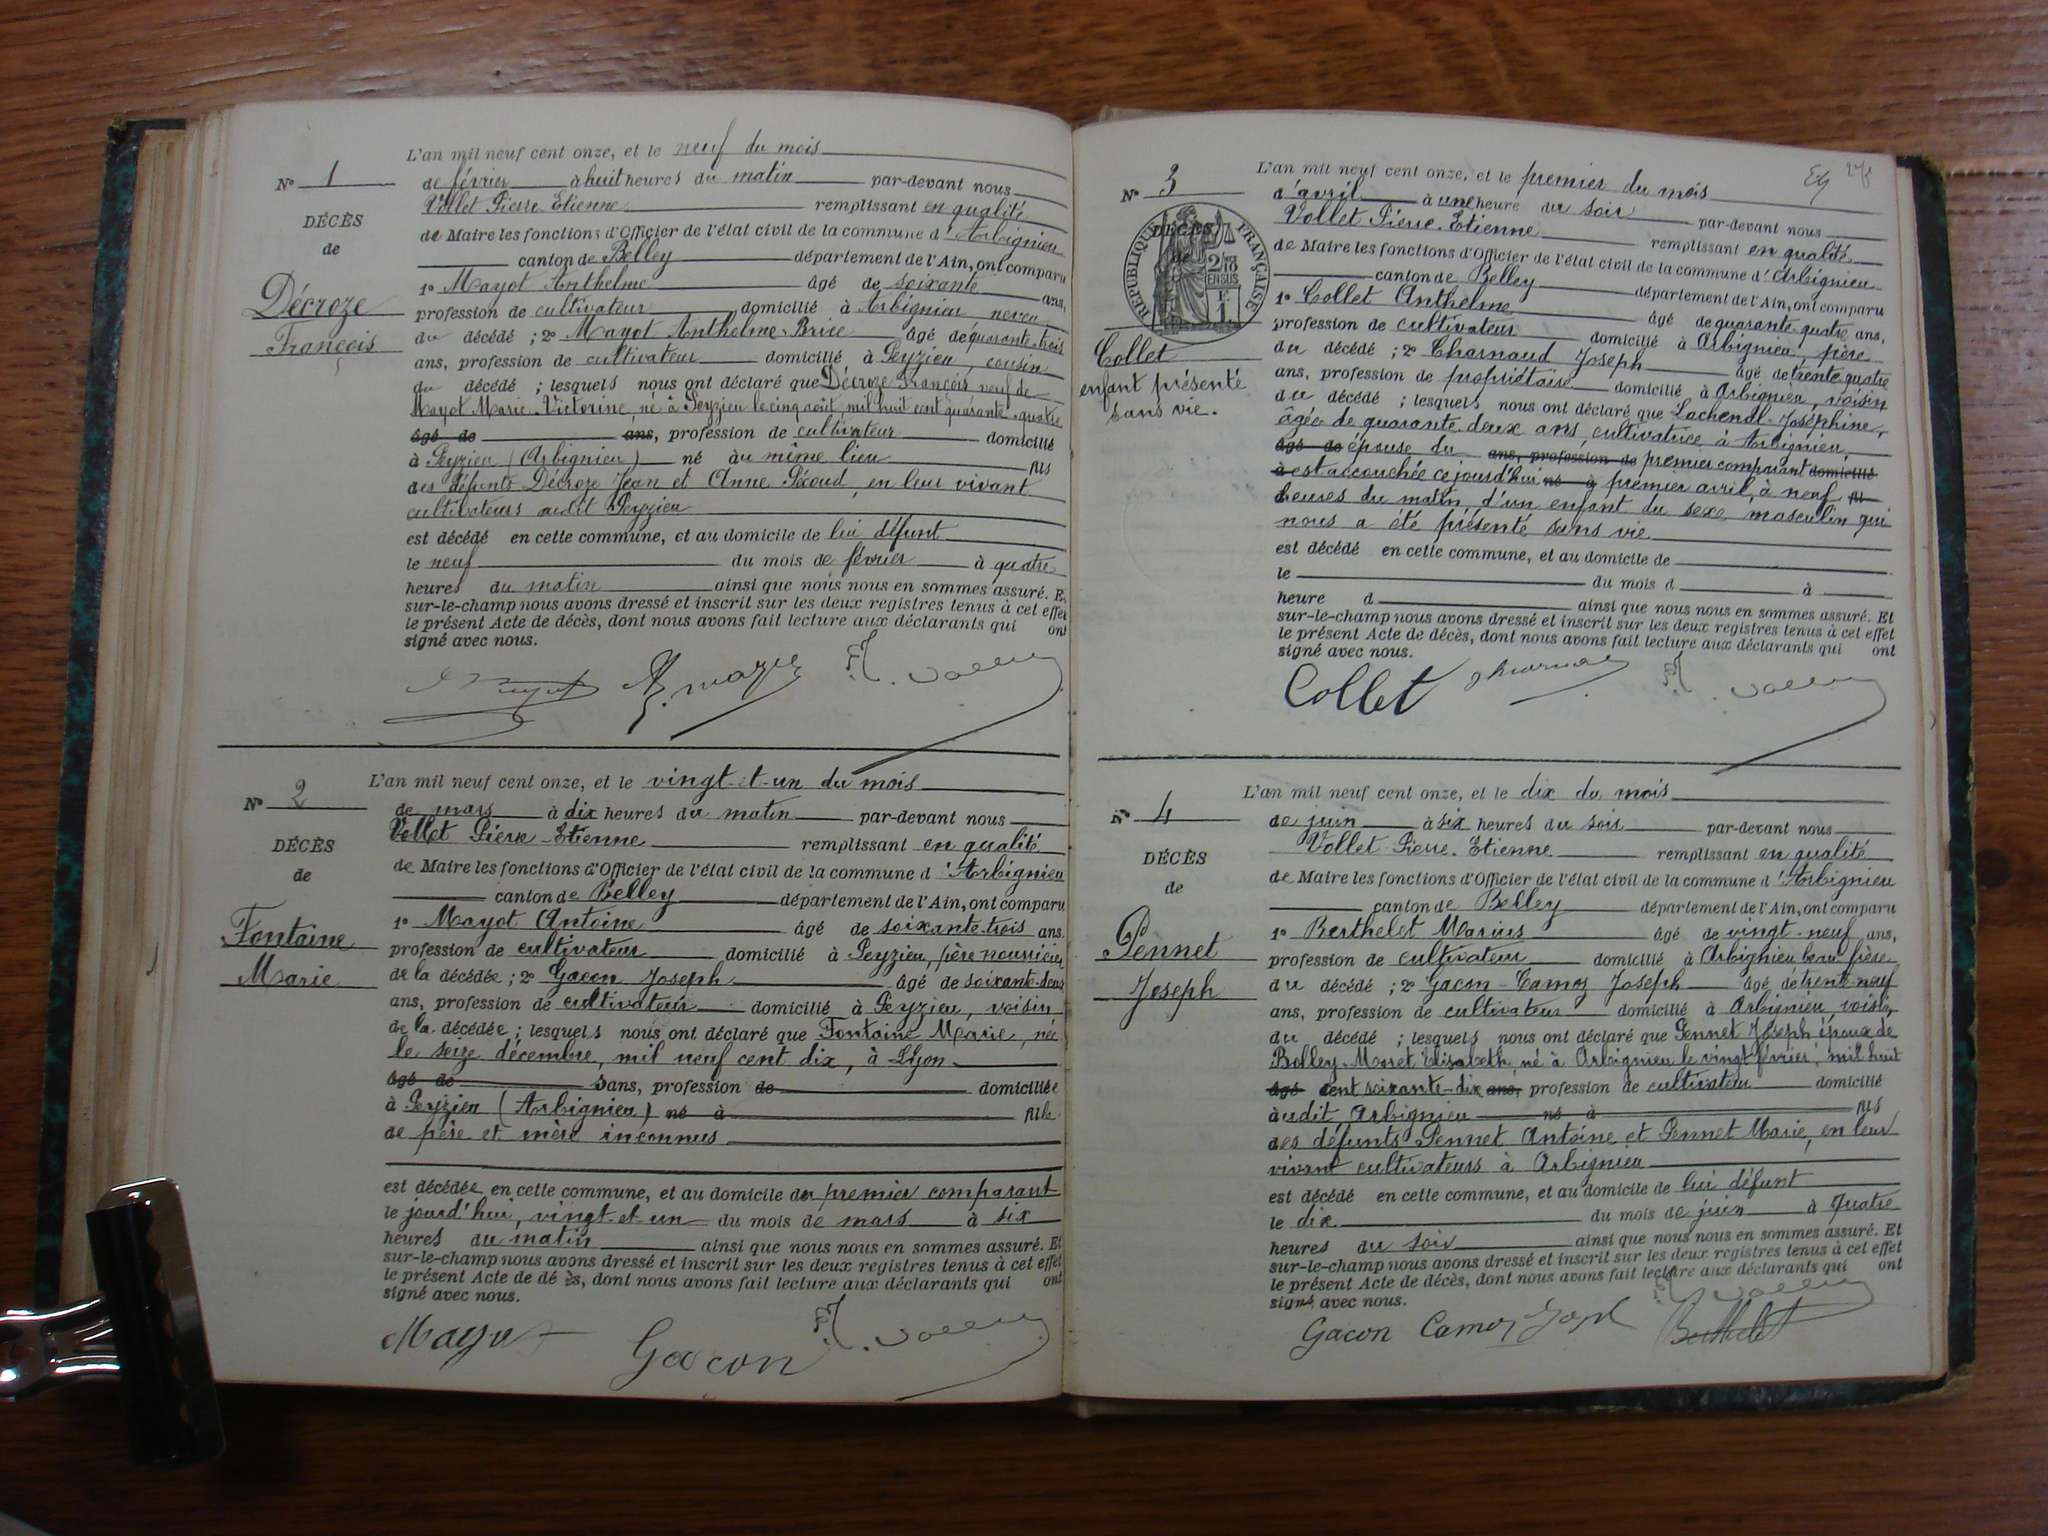 L'an mil neuf cent onze, et le neuf du mois
N° 1
de février à huit heures du matin par-devant nous
Vollet Pierre-Etienne remplissant en qualité
DÉCÈS
de Maire les fonctions d'Officier de l'état civil de la commune d'Arbignieu
de
canton de Belley département de l'Ain, ont comparu
1° Mayot Anthelme âgé de soixante ans,
Décroze
profession de cultivateur domicilié à Arbignieu neveu
François
du décédé ; 2° Mayot Anthelme-Brice âgé de quarante-trois
ans, profession de cultivateur domicilié à Peyzieu, cousin
du décédé ; lesquels nous ont déclaré que Décroze François veuf de
Mayot Marie-Victorine, né à Peyzieu le cinq août mil huit cent quarante-quatre
âgé de ans, profession de cultivateur domicilié
à Peyzieu (Arbignieu) né au même lieu fils
des défunts Décroze Jean et Anne Pécoud, en leur vivant
cultivateurs audit Peyzieu
est décédé en cette commune, et au domicile de lui défunt
le neuf du mois de février à quatre
heures du matin ainsi que nous nous en sommes assuré. Et
sur-le-champ nous avons dressé et inscrit sur les deux registres tenus à cet effet
le présent Acte de décès, dont nous avons fait lecture aux déclarants qui ont
signé avec nous.
L'an mil neuf cent onze, et le vingt-et-un du mois
N° 2
de mars à dix heures du matin par-devant nous
Vollet Pierre-Etienne remplissant en qualité
DÉCÈS
de Maire les fonctions d'Officier de l'état civil de la commune d'Arbignieu
de
canton de Belley département de l'Ain, ont comparu
1° Mayot Antoine âgé de soixante-trois ans.
Fontaine
profession de cultivateur domicilié à Peyzieu, père nourricier
Marie
de la décédée ; 2° Gacon Joseph âgé de soixante-deux
ans, profession de cultivateur domicilié à Peyzieu, voisin
de la décédée ; lesquels nous ont déclaré que Fontaine Marie, née
le seize décembre, mil neuf cent dix, à Lyon
âgé de sans, profession de domiciliée
à Peyzieu (Arbignieu) né à fille
de père et mère inconnus
est décédée en cette commune, et au domicile du premier comparant
le jourd'hui, vingt-et-un du mois de mars à six
heures du matin ainsi que nous nous en sommes assuré. Et
sur-le-champ nous avons dressé et inscrit sur les deux registres tenus à cet effet
le présent Acte de décès, dont nous avons fait lecture aux déclarants qui ont
signé avec nous.
Mayot Gacon
L'an mil neuf cent onze, et le premier du mois
N° 3
d'avril à une heure du soir par-devant nous
Vollet Pierre-Etienne remplissant en qualité
DÉCÈS
de
RÉPUBLIQUE FRANÇAISE
de Maire les fonctions d'Officier de l'état civil de la commune d'Arbignieu
canton de Belley département de l'Ain, ont comparu
1° Collet Anthelme âgé de quarante-quatre ans,
profession de cultivateur domicilié à Arbignieu, père
Collet
du décédé ; 2° Charnaud Joseph âgé de trente-quatre
enfant présenté
ans, profession de propriétaire domicilié à Arbignieu, voisin
sans vie.
du décédé ; lesquels nous ont déclaré que Lachenal Joséphine,
âgée de quarante-deux ans, cultivatrice à Arbignieu,
âgé de épouse du ans, profession de premier comparant domicilié
à est accouchée ce jourd'hui né à premier avril, à neuf fils
heures du matin, d'un enfant du sexe masculin qui
nous a été présenté sans vie
est décédé en cette commune, et au domicile de
le du mois d à
heure d ainsi que nous nous en sommes assuré. Et
sur-le-champ nous avons dressé et inscrit sur les deux registres tenus à cet effet
le présent Acte de décès, dont nous avons fait lecture aux déclarants qui ont
signé avec nous.
Collet
L'an mil neuf cent onze, et le dix du mois
N° 4
de juin à six heures du soir par-devant nous
Vollet Pierre-Etienne remplissant en qualité
DÉCÈS
de Maire les fonctions d'Officier de l'état civil de la commune d'Arbignieu
de
canton de Belley département de l'Ain, ont comparu
1° Berthelet Marius âgé de vingt-neuf ans,
Pennet
profession de cultivateur domicilié à Arbignieu beau-frère
Joseph
du décédé ; 2° Gacon-Camoz Joseph âgé de trente-neuf
ans, profession de cultivateur domicilié à Arbignieu, voisin
du décédé ; lesquels nous ont déclaré que Pennet Joseph époux de
Bolley-Moret Elisabeth, né à Arbignieu le vingt février, mil huit
âgé cent soixante-dix ans, profession de cultivateur domicilié
audit Arbignieu né à fils
des défunts Pennet Antoine et Pennet Marie, en leur
vivant cultivateurs à Arbignieu
est décédé en cette commune, et au domicile de lui défunt
le dix du mois de juin à quatre
heures du soir ainsi que nous nous en sommes assuré. Et
sur-le-champ nous avons dressé et inscrit sur les deux registres tenus à cet effet
le présent Acte de décès, dont nous avons fait lecture aux déclarants qui ont
signé avec nous.
Gacon Camoz Joseph Berthelet